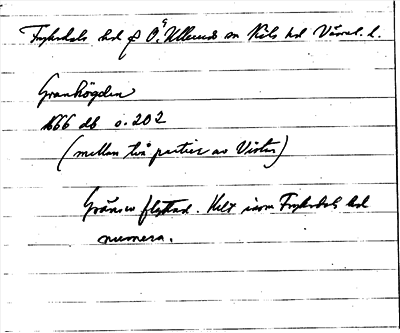 Fryksdals hd o Ö. Ullerud sn Kils hd Värml. l.
Granhögden
1666 db s. 202
(mellan två partier av Visten)
Gränsen flyttad. Helt inom Fryksdals hd
numera.